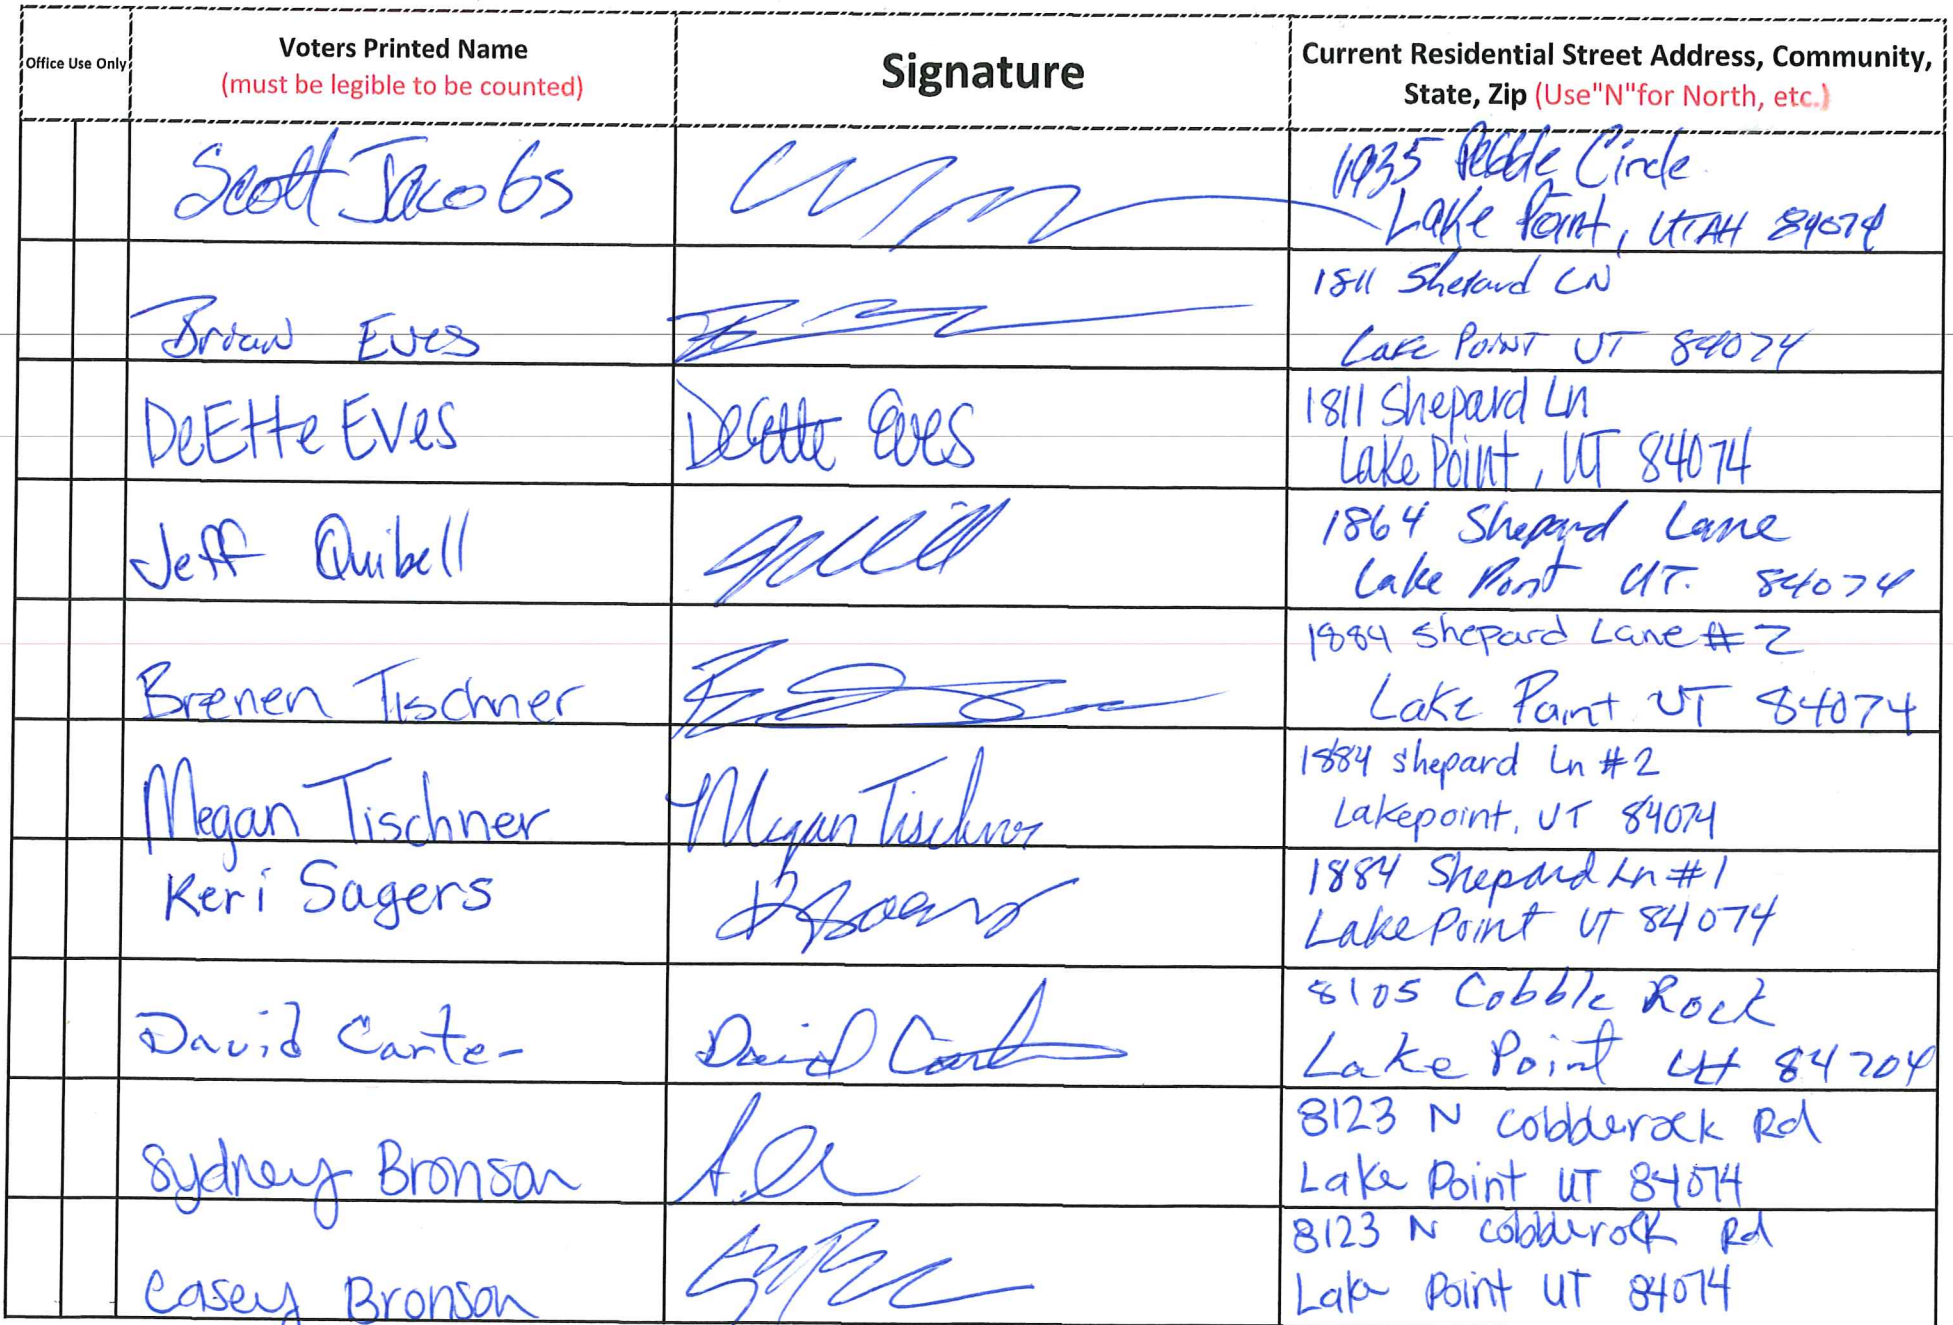 Office Use Only
Voters Printed Name
(must be legible to be counted)
Signature
Current Residential Street Address, Community,
State, Zip (Use"N"for North, etc.)
Scott Jacobs
Pebble Circle
Lake Point, UTAH 84074
Brian Eves
1811 Shepard LN
Lake Point UT 84074
DeEtte Eves
DeEtte Eves
1811 Shepard Ln
Lake Point, UT 84074
Jeff Quibell
1864 Shepard Lane
Lake Point UT. 84074
Brenen Tischner
1884 Shepard Lane # 2
Lake Point UT 84074
Megan Tischner
Megan Tischner
1884 Shepard Ln #2
Lakepoint, UT 84074
Keri Sagers
1884 Shepard Ln #1
Lake Point UT 84074
David Carter
David Carter
8105 Cobble Rock
Lake Point Ut 84704
Sydney Bronson
8123 N Cobblerock Rd
Lake Point UT 84074
Casey Bronson
8123 N Cobblerock Rd
Lake Point UT 84074